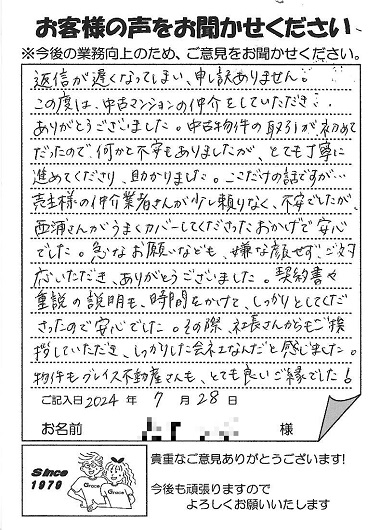 お客様の声をお聞かせください
※今後の業務向上のため、ご意見をお聞かせください。
返信が遅くなってしまい、申し訳ありません。
この度は、中古マンションの仲介をしていただき..
ありがとうございました。中古物件の取引が初めて
だったので、何かと不安もありましたが、とても丁寧に
進めてくださり、助かりました。ここだけの話ですが…
売主様の仲介業者さんが少し頼りなく、不安でしたが、
西浦さんがうまくカバーしてくださったおかげで安心
でした。急なお願いなども、嫌な顔せず、ご対
応いただき、ありがとうございました。契約書や
重説の説明も、時間をかけて、しっかりとしてくだ
さったので安心でした。その際、社長さんからもご挨
拶していただき、しっかりした会社なんだと感じました。
物件もグレイス不動産さんも、とても良いご縁でした！
ご記入日 2024 年 7 月 28 日
お名前 様
Since
1979
Grace
Grace
貴重なご意見ありがとうございます!
今後も頑張りますので
よろしくお願いいたします